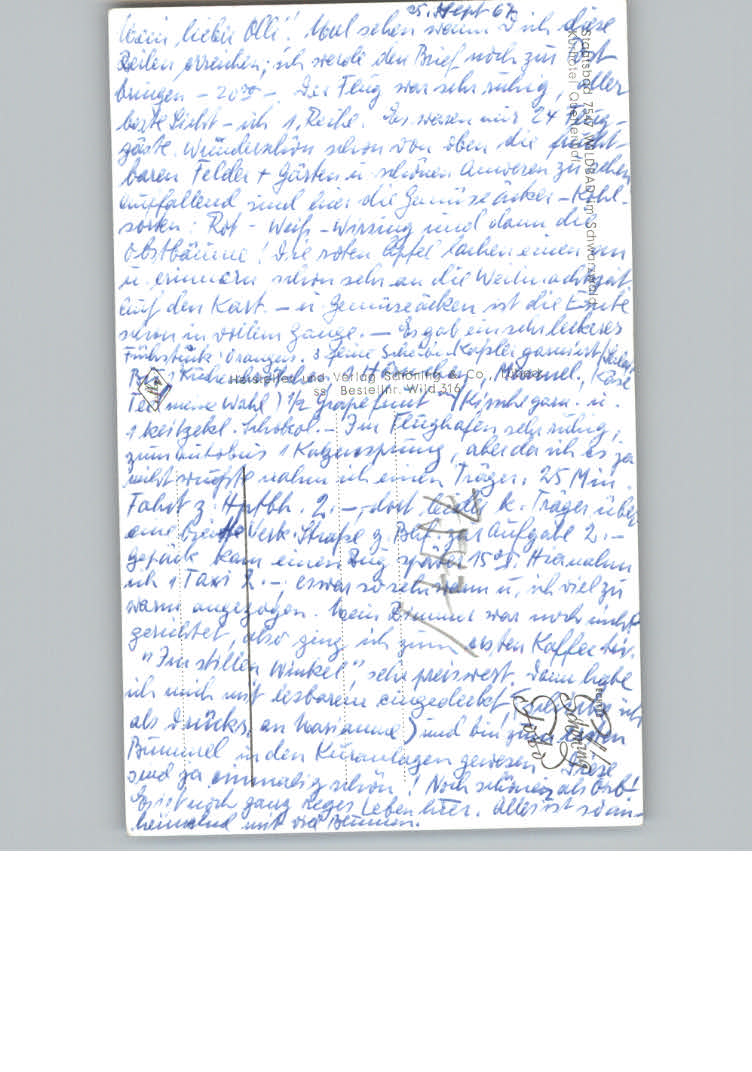 25. Sept 67
Mein lieber Olli! Mal sehen wann Dich diese
Zeilen erreichen; ich werde den Brief noch zur Post
bringen - 20⁰⁰ - Der Flug war sehr ruhig, aller
beste Sicht - ich 1. Reihe. Es waren nur 24 Flug-
gäste. Wunderschön schon von oben die frucht-
baren Felder + Gärten u. schönen Anwesen zu sehen
auffallend sind hier die Gemüseäcker - Kohl-
sorten: Rot - Weiß - Wirsing und dann die
Obstbäume! Die roten Äpfel lachen einen an
u. erinnern schon sehr an die Weihnachtszeit
auf den Kart. - u. Gemüseäcken ist die Ernte
schon in vollem Gange. - Es gab ein sehr leckeres
Frühstück: Orangen. 3 feine Scheiben Kassler garniert
1 Hörnchen, Käse
Tee meine Wahl) 1/2 Grapefruit 1 Kirsche garn. u.
1 Schokol. - Im Flughafen sehr ruhig,
zum Autobus 1 Katzensprung, aber da ich es ja
nicht wußte nahm ich einen Träger. 25 Min.
Fahrt z. Hptbh. 2.-, dort leider k. Träger über
eine breite Verk. Straße z. Bhf. zur Aufgabe 2.-
Gepäck kam einen Zug später 15⁰⁰. Hier nahm
ich 1 Taxi 2.-, es war so sehr warm u. ich viel zu
warm angezogen. Mein Zimmer war noch nicht
gerichtet, also ging ich zum ersten Kaffee trk.
"Im stillen Winkel", sehr preiswert. Dann habe
ich mich mit lesbarem eingedeckt
als Drucks. an Marianne) und bin zum ersten
Bummel in den Kuranlagen gewesen. Diese
sind ja einmalig schön! Noch schöner als Orb!
Es ist noch ganz reges Leben hier. Alles ist so an-
heimelnd mit viel Blumen.
Staatsbad 7547 WILDBAD im Schwarzwald
Kurhotel Quellenhof
Hersteller und Verlag Schöning & Co
ss Bestellnr. Wild 316
Schöning